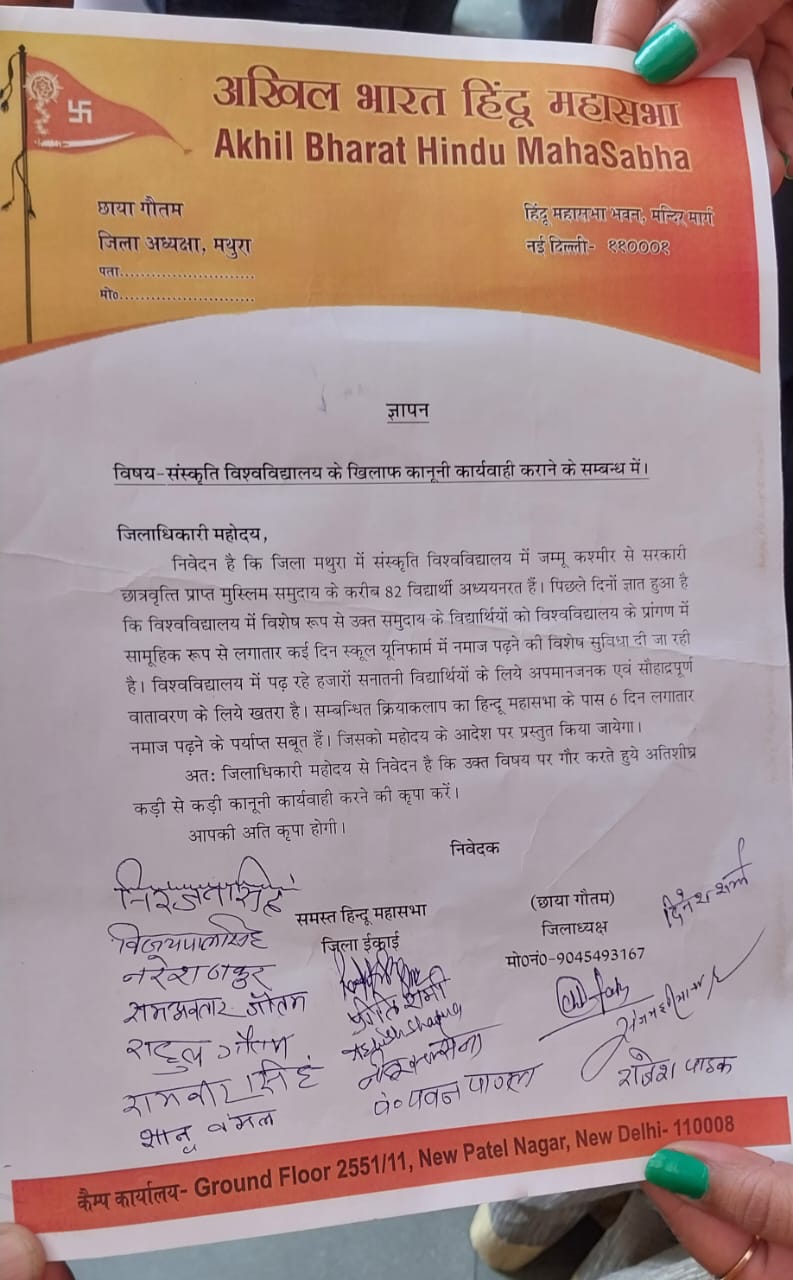 अखिल भारत हिंदू महासभा
Akhil Bharat Hindu MahaSabha
छाया गौतम
जिला अध्यक्षा, मथुरा
पता........................
मो०........................
हिंदू महासभा भवन, मन्दिर मार्ग
नई दिल्ली- ११०००१
ज्ञापन
विषय-संस्कृति विश्वविद्यालय के खिलाफ कानूनी कार्यवाही कराने के सम्बन्ध में।
जिलाधिकारी महोदय,
निवेदन है कि जिला मथुरा में संस्कृति विश्वविद्यालय में जम्मू कश्मीर से सरकारी
छात्रवृत्ति प्राप्त मुस्लिम समुदाय के करीब 82 विद्यार्थी अध्ययनरत हैं। पिछले दिनों ज्ञात हुआ है
कि विश्वविद्यालय में विशेष रूप से उक्त समुदाय के विद्यार्थियों को विश्वविद्यालय के प्रांगण में
सामूहिक रूप से लगातार कई दिन स्कूल यूनिफार्म में नमाज पढ़ने की विशेष सुविधा दी जा रही
है। विश्वविद्यालय में पढ़ रहे हजारों सनातनी विद्यार्थियों के लिये अपमानजनक एवं सौहाद्रपूर्ण
वातावरण के लिये खतरा है। सम्बन्धित क्रियाकलाप का हिन्दू महासभा के पास 6 दिन लगातार
नमाज पढ़ने के पर्याप्त सबूत हैं। जिसको महोदय के आदेश पर प्रस्तुत किया जायेगा।
अतः जिलाधिकारी महोदय से निवेदन है कि उक्त विषय पर गौर करते हुये अतिशीघ्र
कड़ी से कड़ी कानूनी कार्यवाही करने की कृपा करें।
आपकी अति कृपा होगी।
निवेदक
समस्त हिन्दू महासभा
जिला ईकाई
(छाया गौतम)
जिलाध्यक्ष
मो०नं०-9045493167
दिनेश शर्मा
निरंजन सिंह
विजयपाल सिंह
नरेश ठाकुर
रामअवतार गौतम
राहुल गौतम
रामवीर सिंह
शानू
प्रीति शर्मी
पं० पवन
राजेश पाठक
कैम्प कार्यालय- Ground Floor 2551/11, New Patel Nagar, New Delhi- 110008